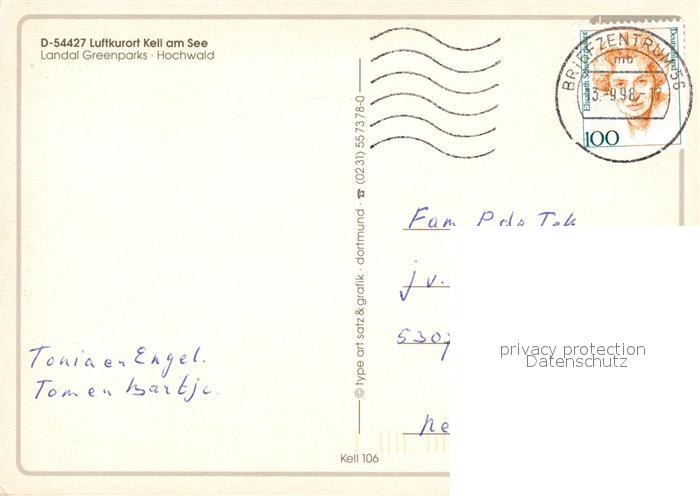 D-54427 Luftkurort Kell am See
Landal Greenparks · Hochwald
© type art satz & grafik · dortmund · ☎ (0231) 55 73 78-0
BRIEFZENTRUM 56
mb
13.-9.98.-17
Elisabeth Schwarzhaupt
Deutschland
100
Fam P de
jv.
5307
Ne
privacy protection
Datenschutz
Tonia en Engel.
Tom en Bartje.
Kell 106